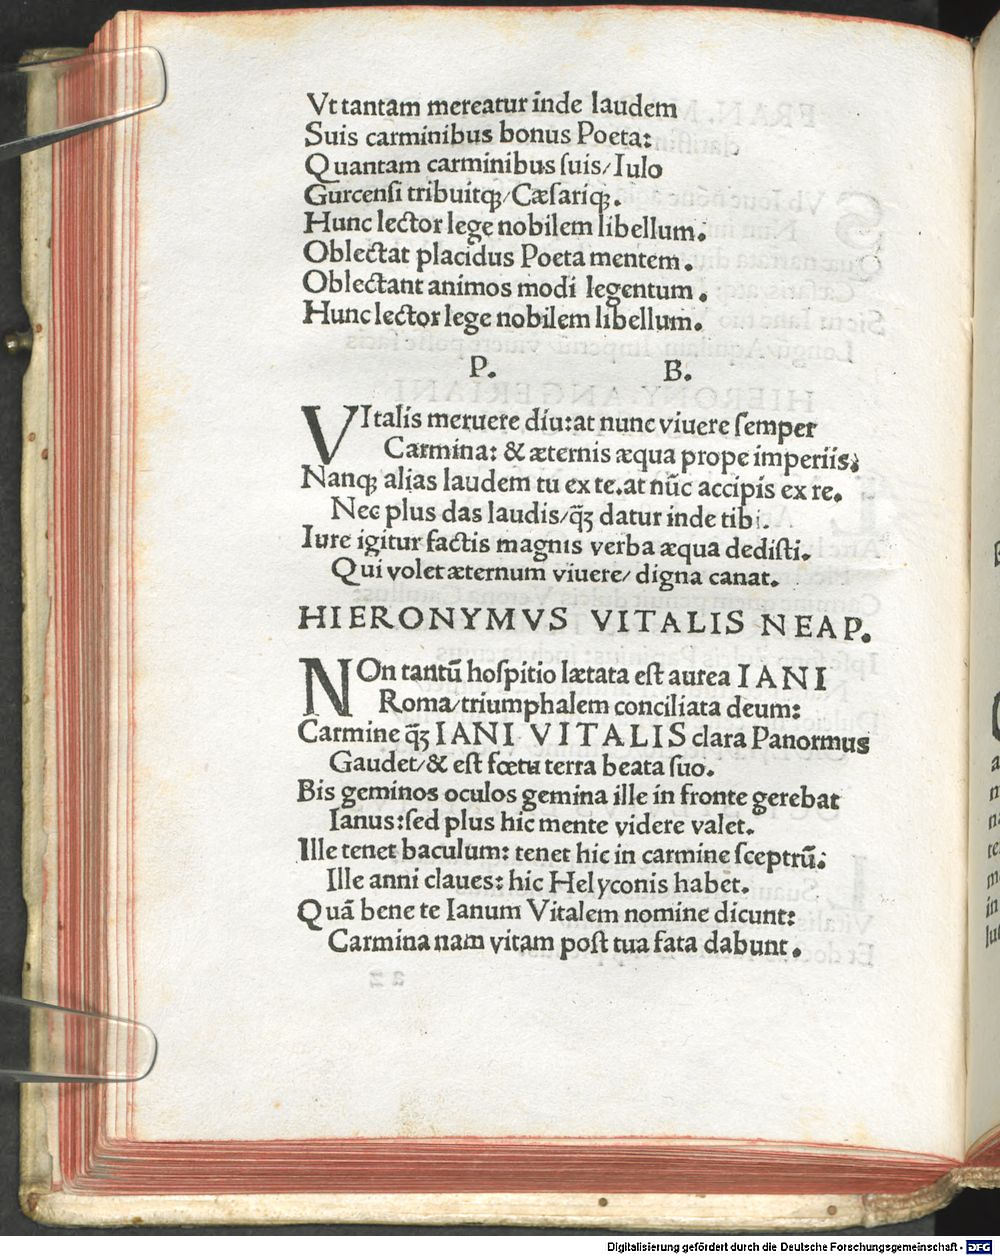 Vt tantam mereatur inde laudem
Suis carminibus bonus Poeta:
Quantam carminibus ſuis/Iulo
Gurcenſi tribuitqꝫ/Cæſariqꝫ.
Hunc lector lege nobilem libellum.
Oblectat placidus Poeta mentem.
Oblectant animos modi legentum.
Hunc lector lege nobilem libellum.
P. B.
VItalis meruere diu:at nunc viuere ſemper
Carmina: & æternis æqua prope imperiis;
Nanqꝫ alias laudem tu ex te.at nūc accipis ex re.
Nec plus das laudis/q̄ꝫ datur inde tibi.
Iure igitur factis magnis verba æqua dediſti.
Qui volet æternum viuere/ digna canat.
HIERONYMVS VITALIS NEAP.
NOn tantū hoſpitio lætata eſt aurea IANI
Roma/triumphalem conciliata deum:
Carmine q̄ꝫ IANI VITALIS clara Panormus
Gaudet/& eſt fœtu terra beata ſuo.
Bis geminos oculos gemina ille in fronte gerebat
Ianus:ſed plus hic mente videre valet.
Ille tenet baculum: tenet hic in carmine ſceptrū;
Ille anni claues: hic Helyconis habet.
Quā bene te Ianum Vitalem nomine dicunt:
Carmina nam vitam poſt tua fata dabunt.
Digitalisierung gefördert durch die Deutsche Forschungsgemeinschaft - DFG